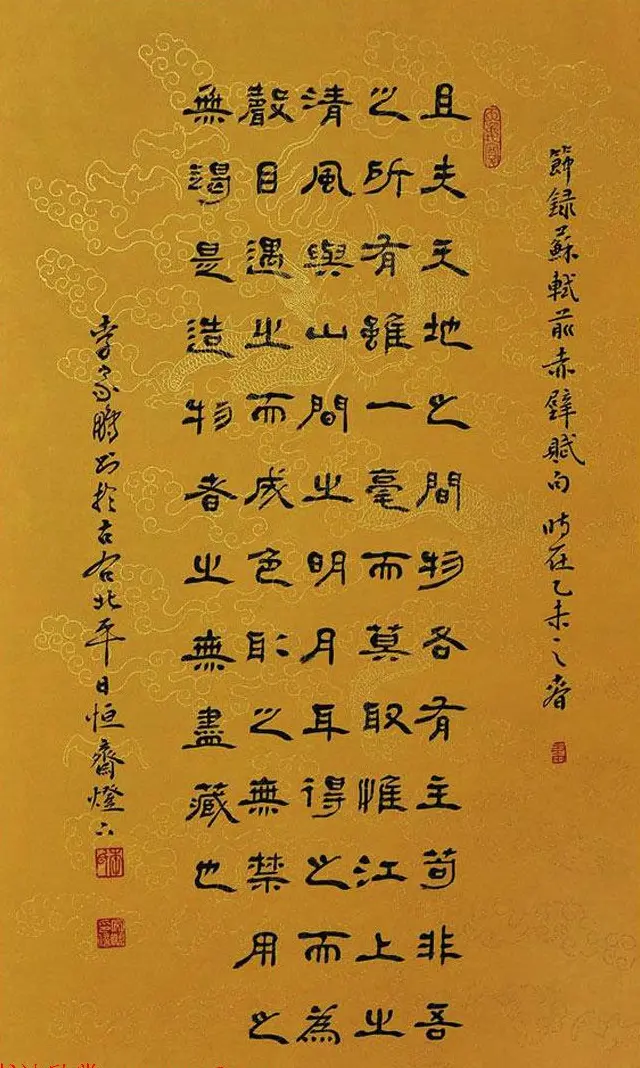 節録蘇軾前赤壁賦句 時在乙未之春
且夫天地之間物各有主苟非吾
之所有雖一毫而莫取惟江上之
清風與山間之明月耳得之而為
聲目遇之而成色取之無禁用之
無竭是造物者之無盡藏也
李家鵬书於古右北平日恒齋燈下